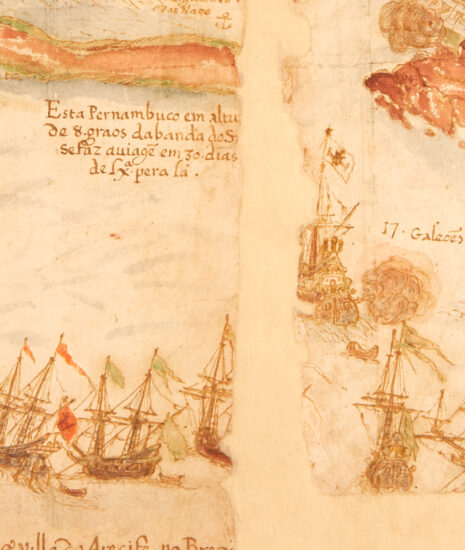 das Naos
Esta Pernambuco em altu
de 8. graos dabanda do S.
se faz aviagẽ em 30. dias
de Lxª. pera lá.
17. Galeoẽs
villa do Arecife no Bra